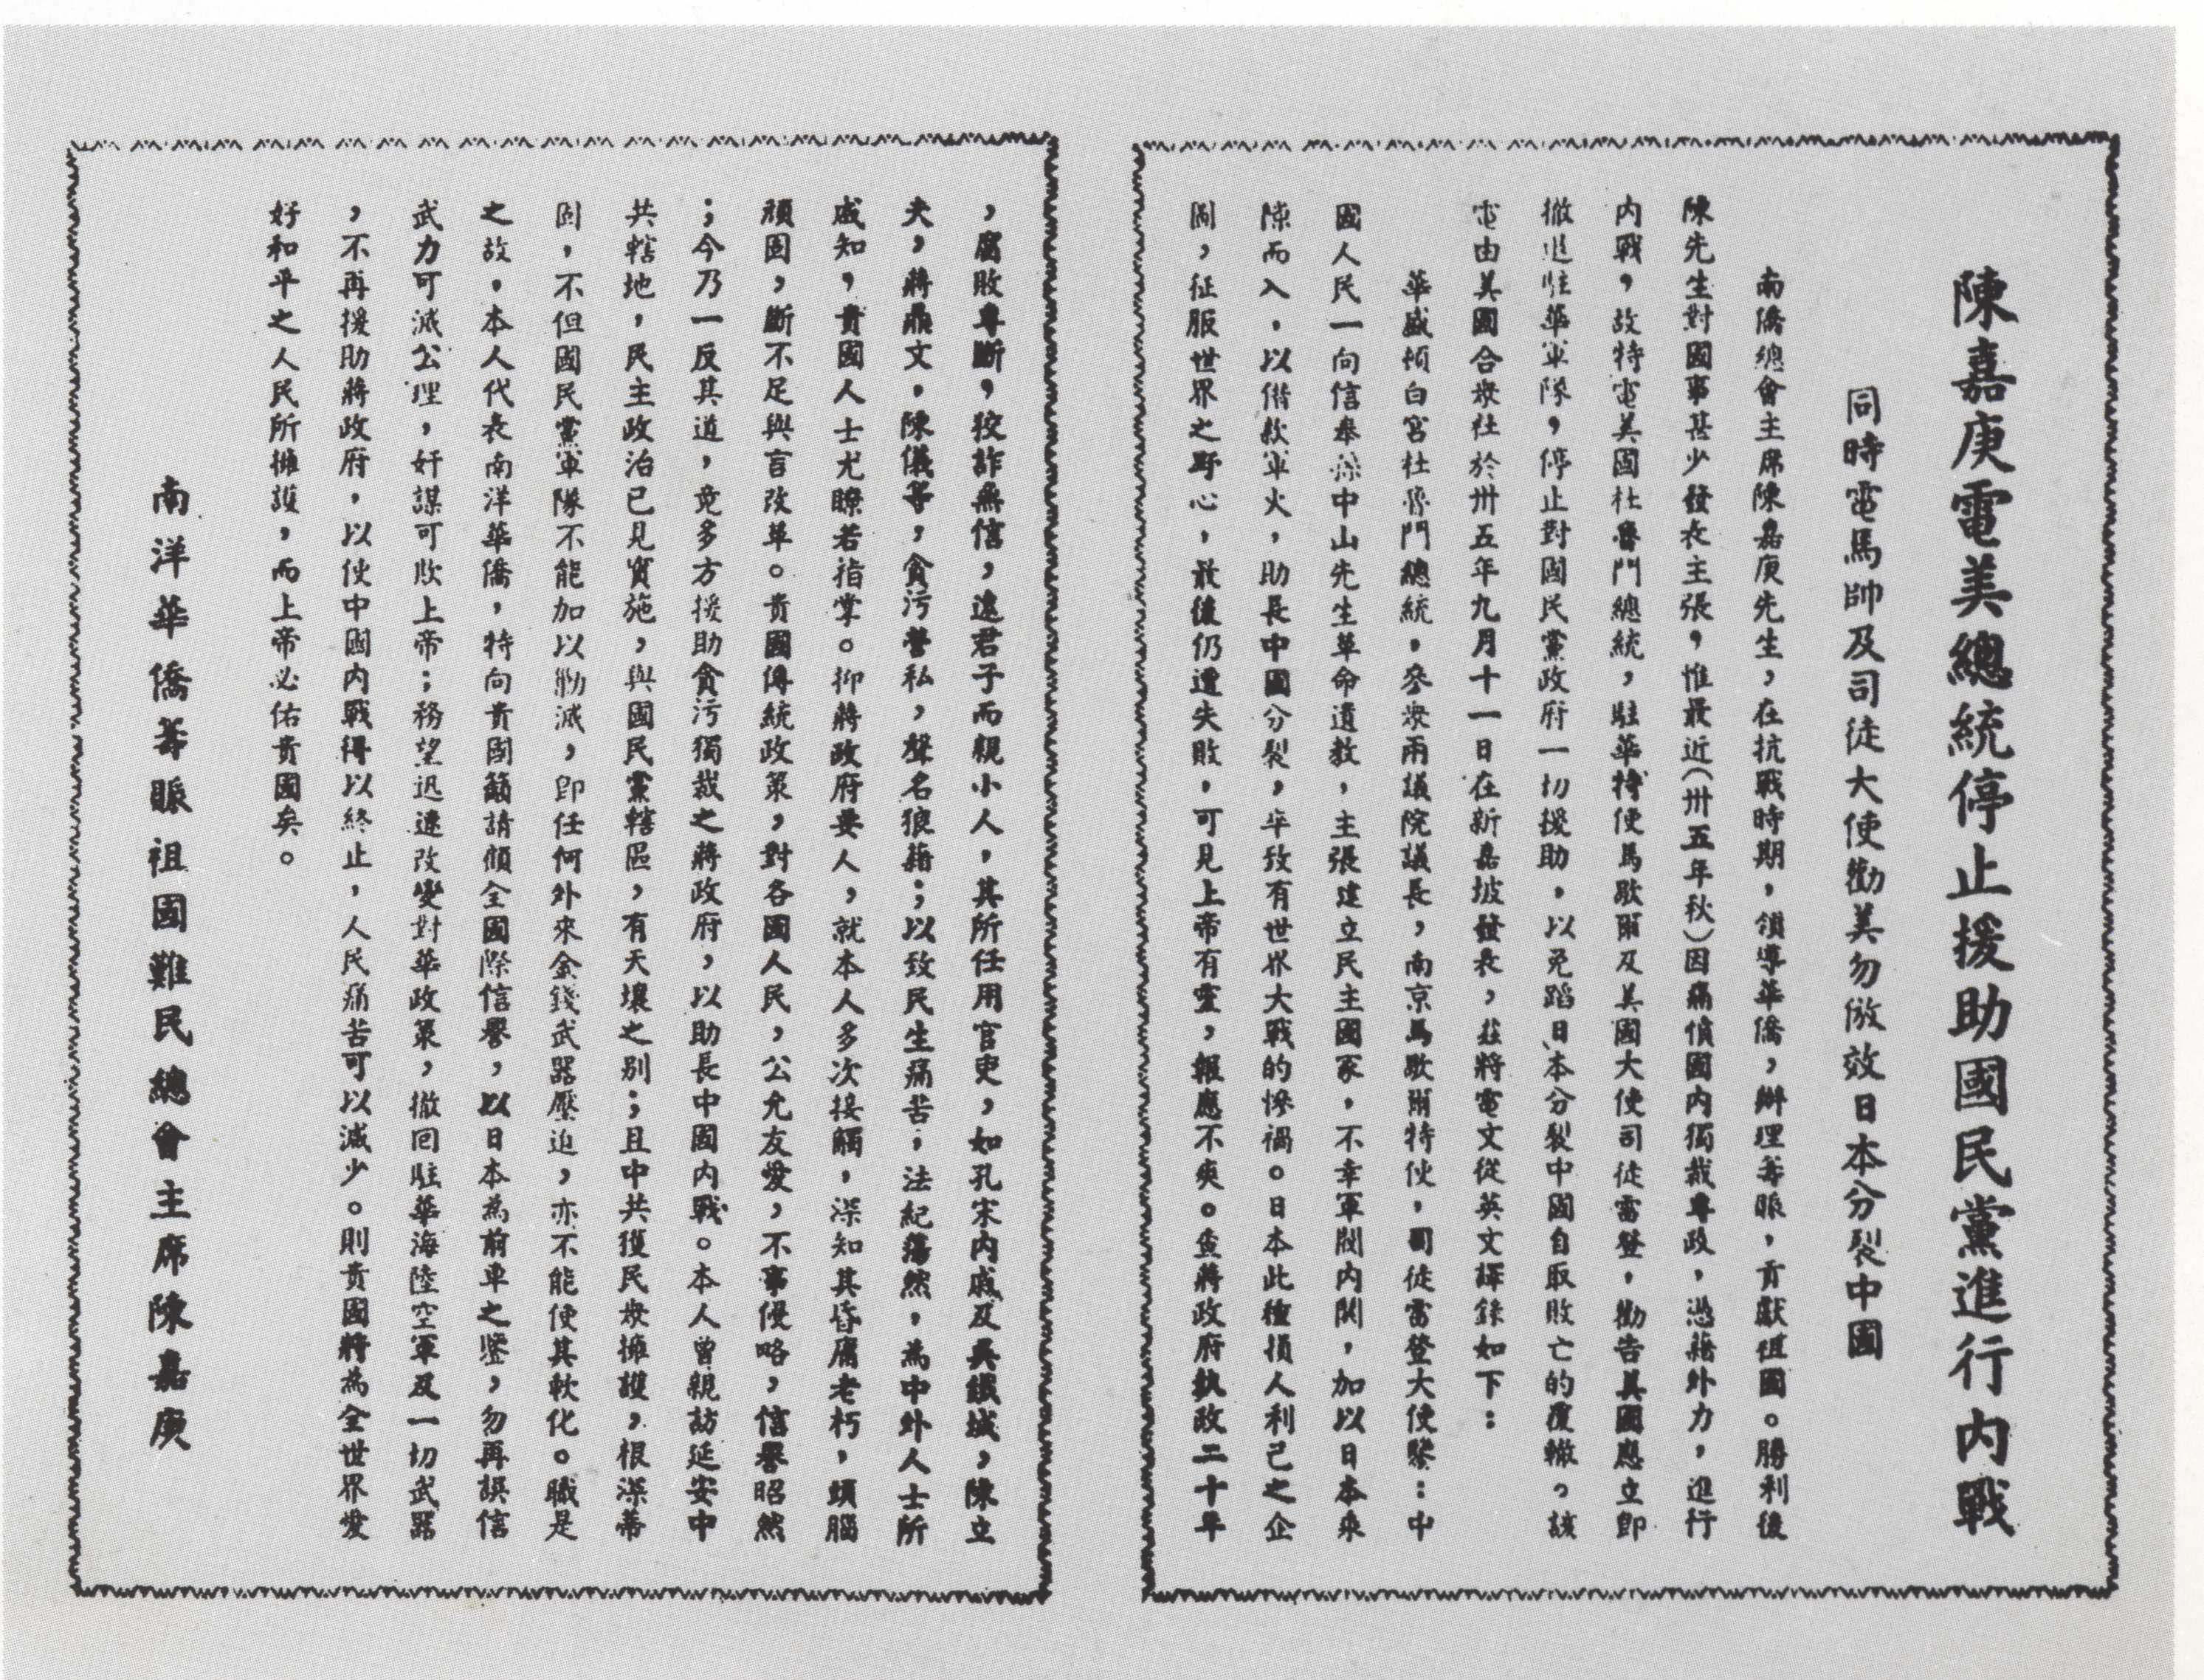 陳嘉庚電美總統停止援助國民黨進行內戰
同時電馬帥及司徒大使勸美勿倣效日本分裂中國
南僑總會主席陳嘉庚先生，在抗戰時期，領導華僑，辦理籌賑，貢獻祖國。勝利後
陳先生對國事甚少發表主張，惟最近（卅五年秋）因痛憤國內獨裁專政，憑藉外力，進行
內戰，故特電美國杜魯門總統，駐華特使馬歇爾及美國大使司徒雷登，勸告美國應立即
撤退駐華軍隊，停止對國民黨政府一切援助，以免蹈日本分裂中國自取敗亡的覆轍。該
電由美國合衆社於卅五年九月十一日在新嘉坡發表，茲將電文從英文譯錄如下：
華盛頓白宮杜魯門總統，參衆兩議院議長，南京馬歇爾特使，司徒雷登大使鑒：中
國人民一向信奉孫中山先生革命遺教，主張建立民主國家，不幸軍閥內鬨，加以日本乘
隙而入，以借款軍火，助長中國分裂，卒致有世界大戰的慘禍。日本此種損人利己之企
圖，征服世界之野心，最後仍遭失敗，可見上帝有靈，報應不爽。查蔣政府執政二十年
，腐敗專斷，狡詐無信，遠君子而親小人，其所任用官吏，如孔宋內戚及吳鐵城，陳立
夫，蔣鼎文，陳儀等，貪污營私，聲名狼藉；以致民生痛苦，法紀蕩然，為中外人士所
咸知，貴國人士尤瞭若指掌。抑蔣政府要人，就本人多次接觸，深知其昏庸老朽，頭腦
頑固，斷不足與言改革。貴國傳統政策，對各國人民，公允友愛，不事侵略，信譽昭然
；今乃一反其道，竟多方援助貪污獨裁之蔣政府，以助長中國內戰。本人曾親訪延安中
共轄地，民主政治已見實施，與國民黨轄區，有天壤之別；且中共獲民衆擁護，根深蒂
固，不但國民黨軍隊不能加以勦滅，即任何外來金錢武器壓迫，亦不能使其軟化。職是
之故，本人代表南洋華僑，特向貴國籲請顧全國際信譽，以日本為前車之鑒，勿再誤信
武力可滅公理，奸謀可欺上帝；務望迅速改變對華政策，撤回駐華海陸空軍及一切武器
，不再援助蔣政府，以使中國內戰得以終止，人民痛苦可以減少。則貴國將為全世界愛
好和平之人民所擁護，而上帝必佑貴國矣。
南洋華僑籌賑祖國難民總會主席陳嘉庚